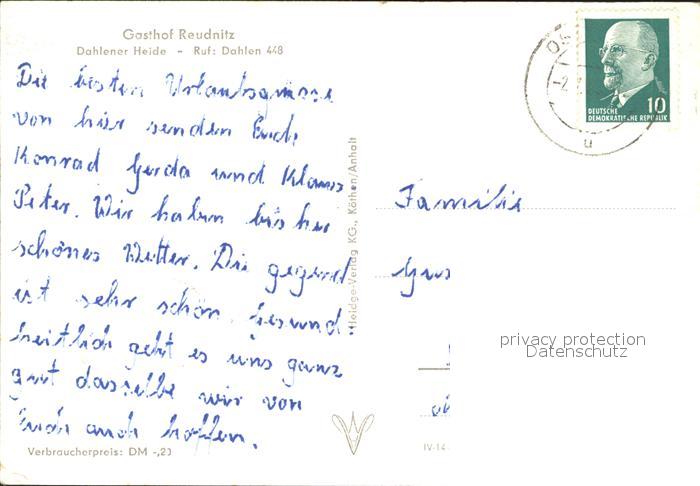 Gasthof Reudnitz
Dahlener Heide – Ruf: Dahlen 448
Die besten Urlaubsgrüsse
von hier senden Euch
Konrad Gerda und Klaus
Peter. Wir haben bisher
schönes Wetter. Die gegend
ist sehr schön. Gesund-
heitlich geht es uns ganz
gut dasselbe wir von
Euch auch hoffen.
Verbraucherpreis: DM -,23
Heldge-Verlag KG., Köthen/Anhalt
DEUTSCHE
DEMOKRATISCHE REPUBLIK
10
u
Familie
privacy protection
Datenschutz
IV-14